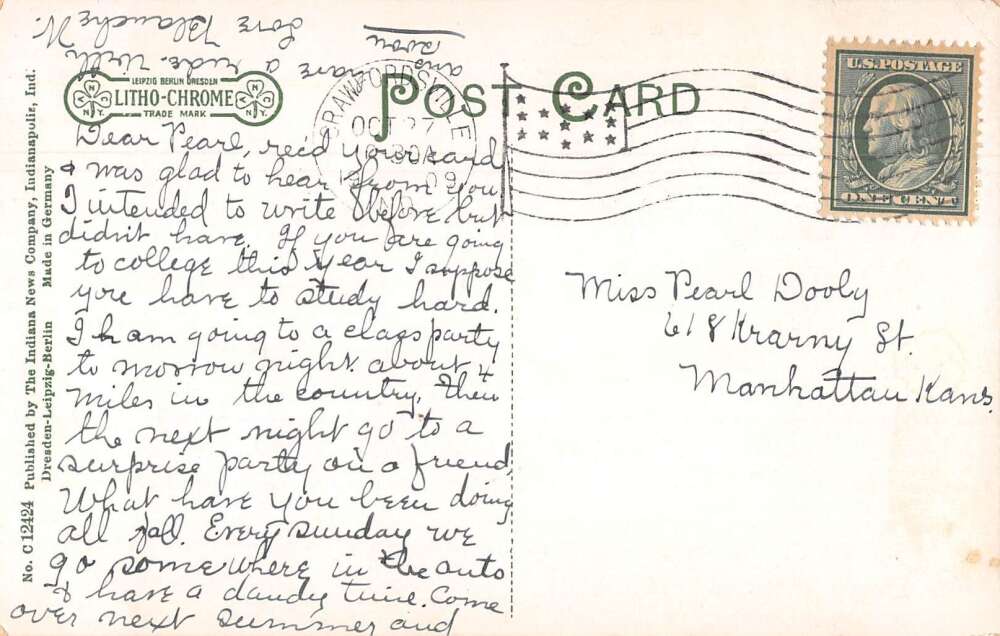 POST CARD
LEIPZIG BERLIN DRESDEN
LITHO-CHROME
TRADE MARK
N Y C
N Y C
No. C 12424 Published by The Indiana News Company, Indianapolis, Ind.
Dresden-Leipzig-Berlin Made in Germany
CRAWFORDSVILLE
OCT 27
30A
09
IND.
U.S. POSTAGE
ONE CENT
Dear Pearl, rec'd your card
& was glad to hear from you
I intended to write before but
didn't have. If you are going
to college this year I suppose
you have to study hard.
I am going to a class party
to morrow night about 4
miles in the country. Then
the next night go to a
surprise party on a friend.
What have you been doing
all fall. Every sunday we
go somewhere in the auto
& have a dandy time. Come
over next summer and
have a ride. With
Love Blanche N.
ans soon
Miss Pearl Dooly
618 Krarny St.
Manhattan Kans.